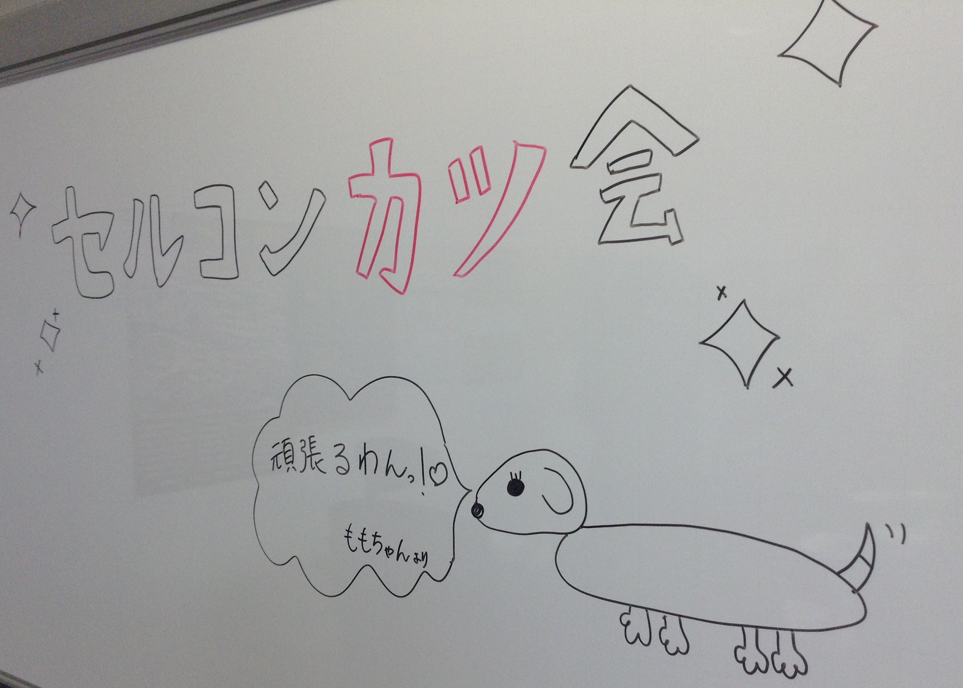 セルコンカツ会
頑張るわんっ!♡
ももちゃんより